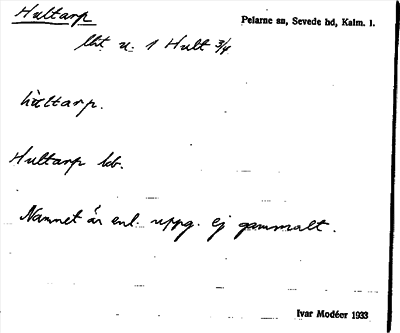 Hultarp
Pelarne sn, Sevede hd, Kalm. l.
lht u. 1 Hult 3/4
Hultarp kb.
Namnet är enl. uppg. ej gammalt.
Ivar Modéer 1933